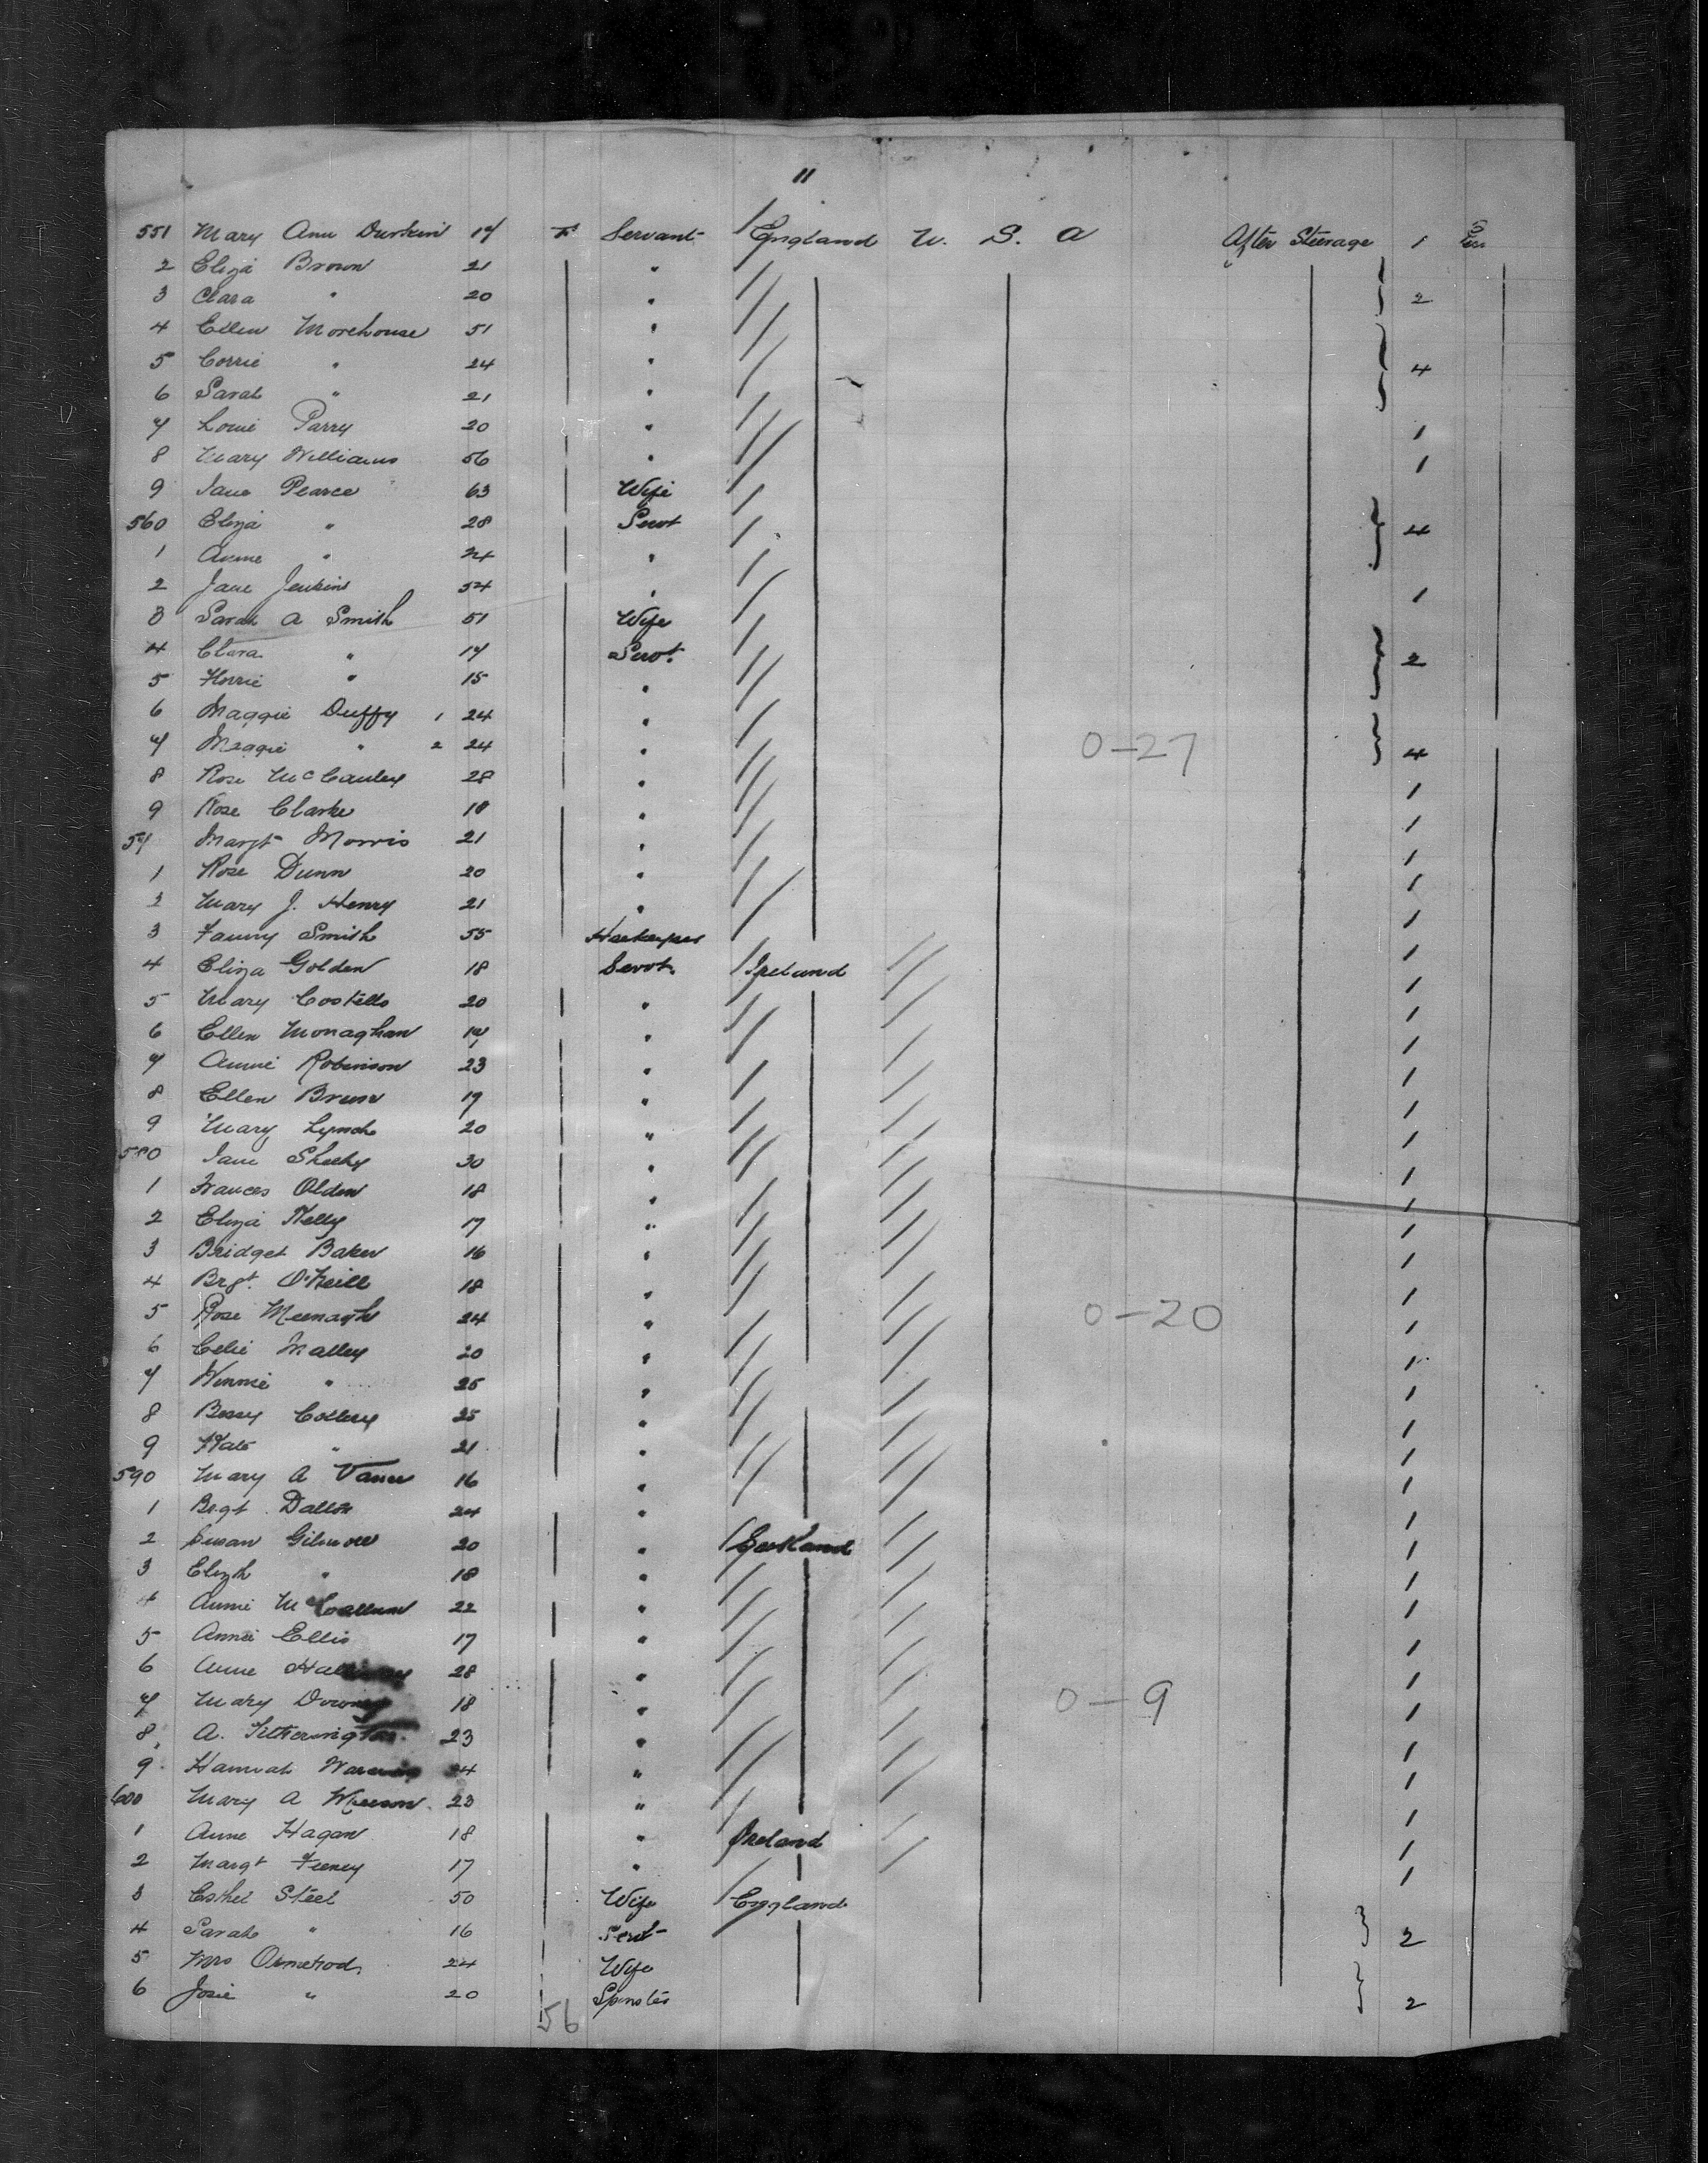 11
551 Mary Ann Durkin 17 F Servant England U. S. A After Steerage 1
2 Eliza Brown 21 "
3 Clara " 20 " 2
4 Ellen Morehouse 51 "
5 Corrie " 24 " 4
6 Sarah " 21 "
7 Louie Parry 20 " 1
8 Mary Williams 56 " 1
9 Jane Pearce 63 Wife
560 Eliza " 28 Servt 4
1 Annie " 24 "
2 Jane Jenkins 54 " 1
3 Sarah A Smith 51 Wife
4 Clara " 17 Servt. 2
5 Florrie " 15 "
6 Maggie Duffy 1 24 "
7 Maggie " 2 24 " 0-27 4
8 Rose McCauley 28 " 1
9 Rose Clarke 18 " 1
57 Margt Morris 21 " 1
1 Rose Dunn 20 " 1
2 Mary J. Henry 21 " 1
3 Fanny Smith 55 1
4 Eliza Golden 18 Servt. Ireland 1
5 Mary Costello 20 " 1
6 Ellen Monaghan 17 " 1
7 Annie Robinson 23 " 1
8 Ellen 19 " 1
9 Mary Lynch 20 " 1
580 Jane Sheehy 30 " 1
1 Frances Olden 18 " 1
2 Eliza Kelly 17 " 1
3 Bridget Baker 16 " 1
4 Brgt. O'Neill 18 " 1
5 Rose Meenagh 24 " 0-20 1
6 Celie Malley 20 " 1
7 Winnie " 25 " 1
8 Bessy Collery 25 " 1
9 Kate " 21 " 1
590 Mary A Vance 16 " 1
1 Brgt Dalton 24 " 1
2 Susan Gilmore 20 " Scotland 1
3 Elizth " 18 " 1
4 Annie McCallum 22 " 1
5 Annie Ellis 17 " 1
6 Annie 28 " 1
7 Mary Downey 18 " 0-9 1
8 A. 23 " 1
9 Hannah 24 " 1
600 Mary A 23 " 1
1 Anne Hagan 18 " Ireland 1
2 Margt Feeney 17 " 1
3 Esther Steel 50 Wife England
4 Sarah " 16 Servt 2
5 Mrs Ormerod 24 Wife
6 Josie " 20 Spinster 2
56